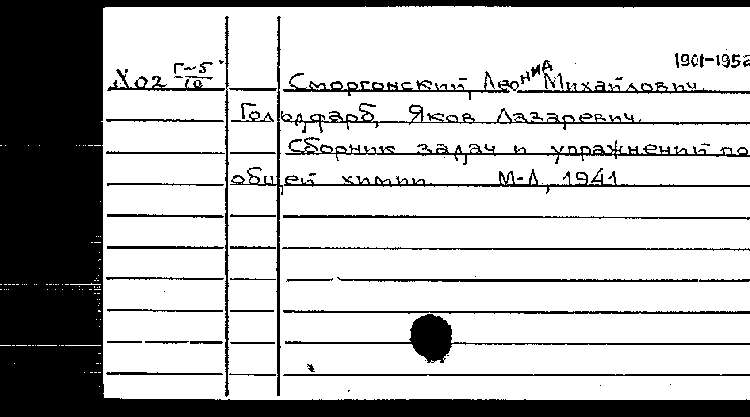 1901-195
Х02 Г-5/10 Сморгонский, Леонид Михайлович.
Гольдфарб, Яков Лазаревич.
Сборник задач и упражнений по
общей химии. М-Л, 1941